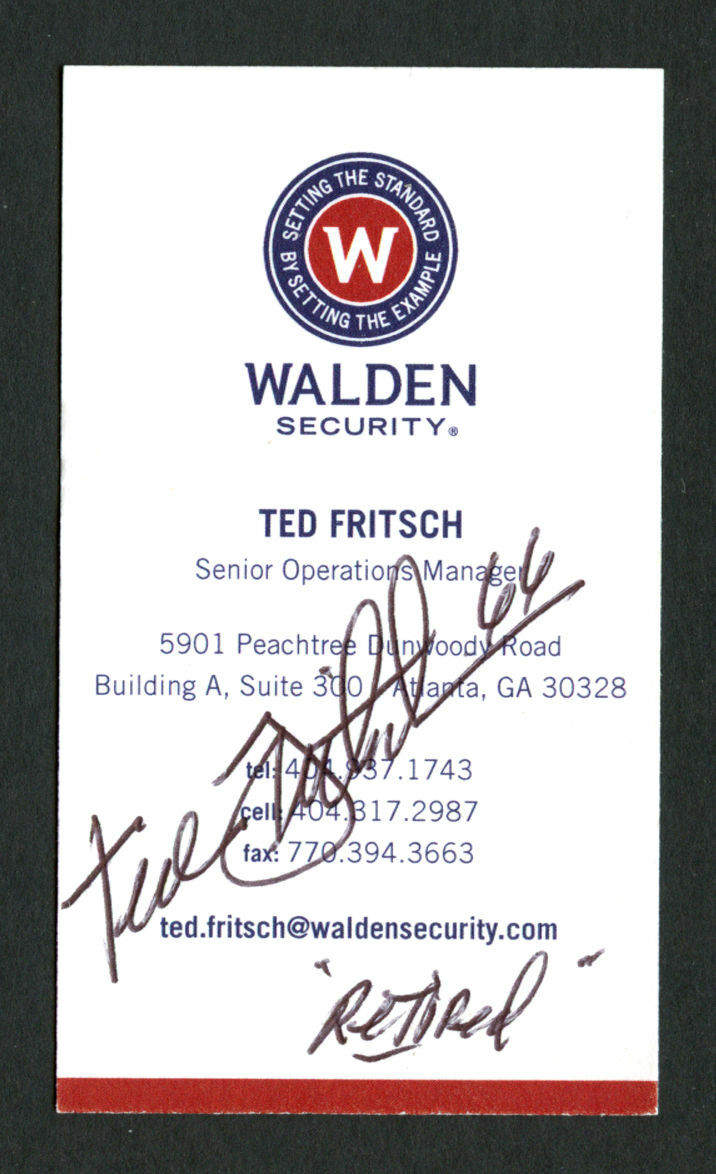 SETTING THE STANDARD
BY SETTING THE EXAMPLE
W
WALDEN
SECURITY®
TED FRITSCH
Senior Operations Manager
66
5901 Peachtree Dunwoody Road
Building A, Suite 300 Atlanta, GA 30328
tel: 404.937.1743
cell: 404.317.2987
fax: 770.394.3663
Ted Fritsch
ted.fritsch@waldensecurity.com
"Retired"